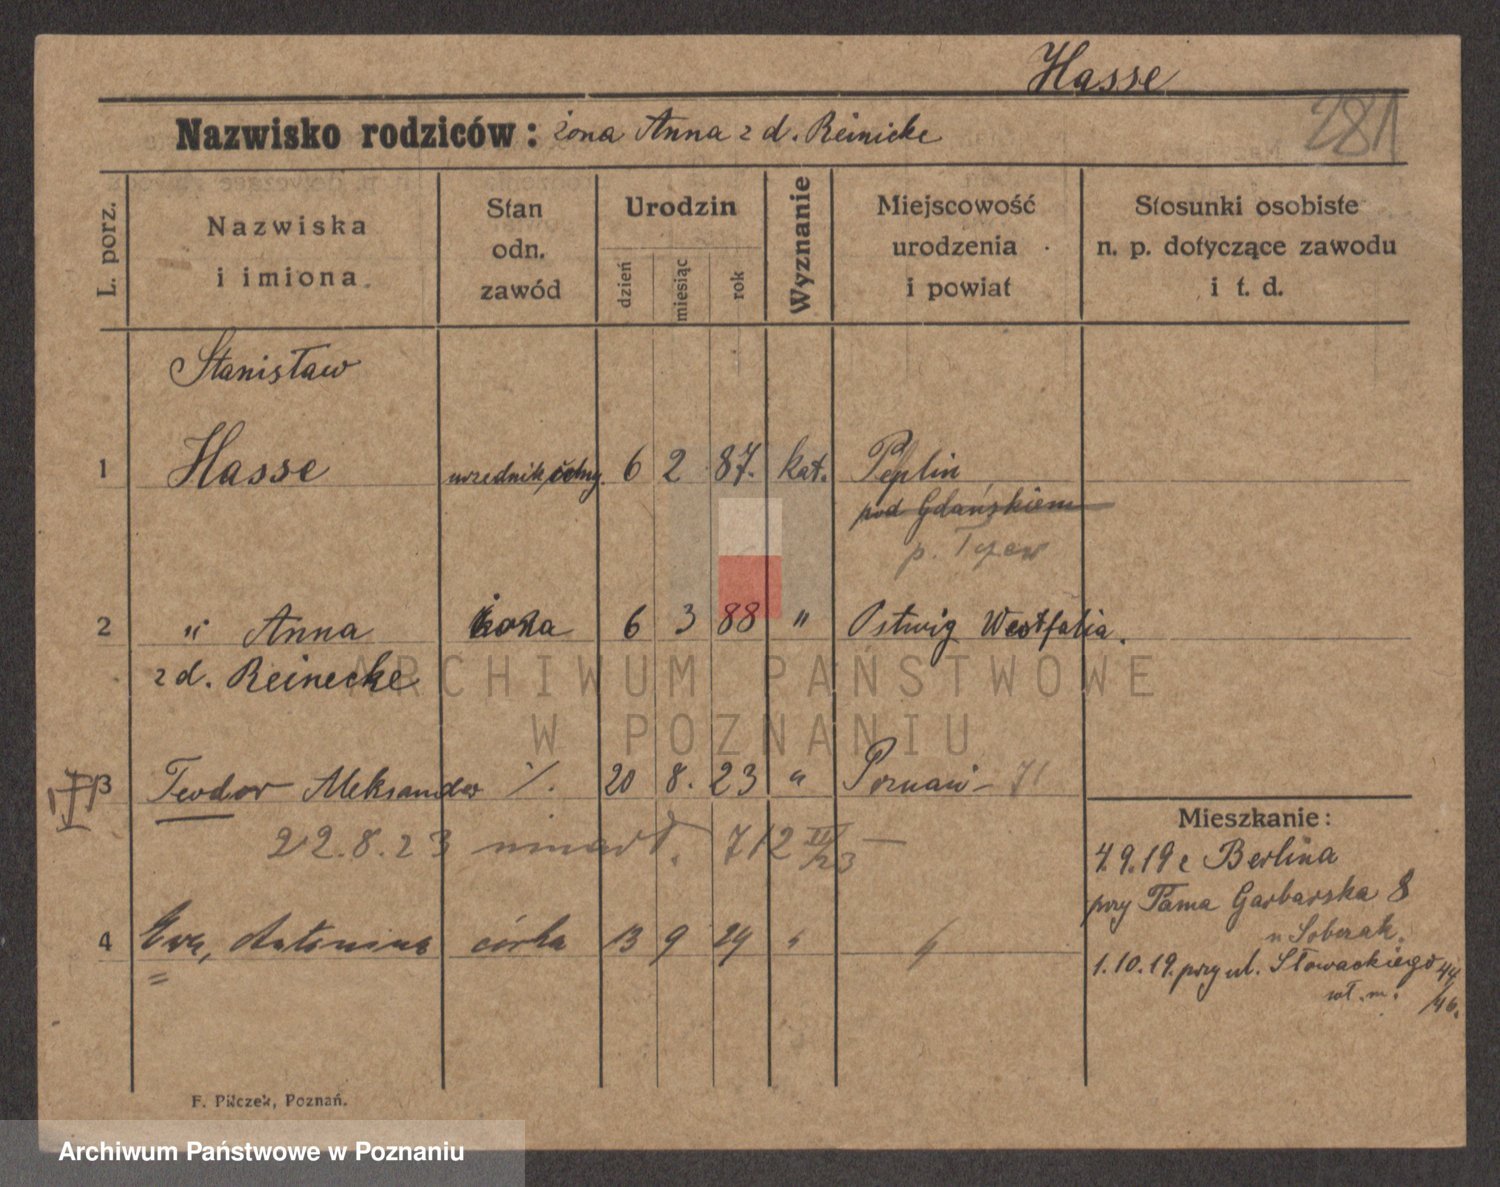 Hasse
281
Nazwisko rodziców: żona Anna z d. Reinicke
L. porz.
Nazwiska
i imiona
Stan
odn.
zawód
Urodzin
dzień
miesiąc
rok
Wyznanie
Miejscowość
urodzenia
i powiat
Stosunki osobiste
n. p. dotyczące zawodu
i t. d.
Stanisław
1 Hasse urzednik celny. 6 2 87. kat. Peplin
pod Gdańskiem
p. Tczew
2 " Anna żona 6 3 88 " Ostwig Westfalia.
z d. Reinecke
ARCHIWUM PAŃSTWOWE
W POZNANIU
3 Teodor Aleksander /. 20 8. 23 " Poznań - 71
22.8.23 umarł. 712 IV/23 —
4 Ewa, Antonina córka 13 9 29 "
Mieszkanie:
4.9.19 z Berlina
przy Tama Garbarska 8
u Soberak.
1.10.19. przy ul. Słowackiego 44
wł. m. /46.
F. Pilczek, Poznań.
Archiwum Państwowe w Poznaniu